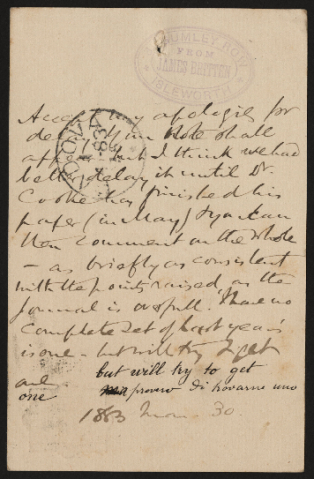 BRUMLEY ROW
FROM
JAMES BRITTEN
ISLEWORTH
Accept my apologies for
delay. Your Note shall
appear but I think we had
better delay it until Dr.
Cooke has finished his
paper (in May) & you can
then comment on the whole
— as briefly as consistent
with the points raised, as the
Journal is overfull. I have no
complete set of last year's
is one - but will try & get
one
but will try to get
proverò di trovarne uno
1883 30